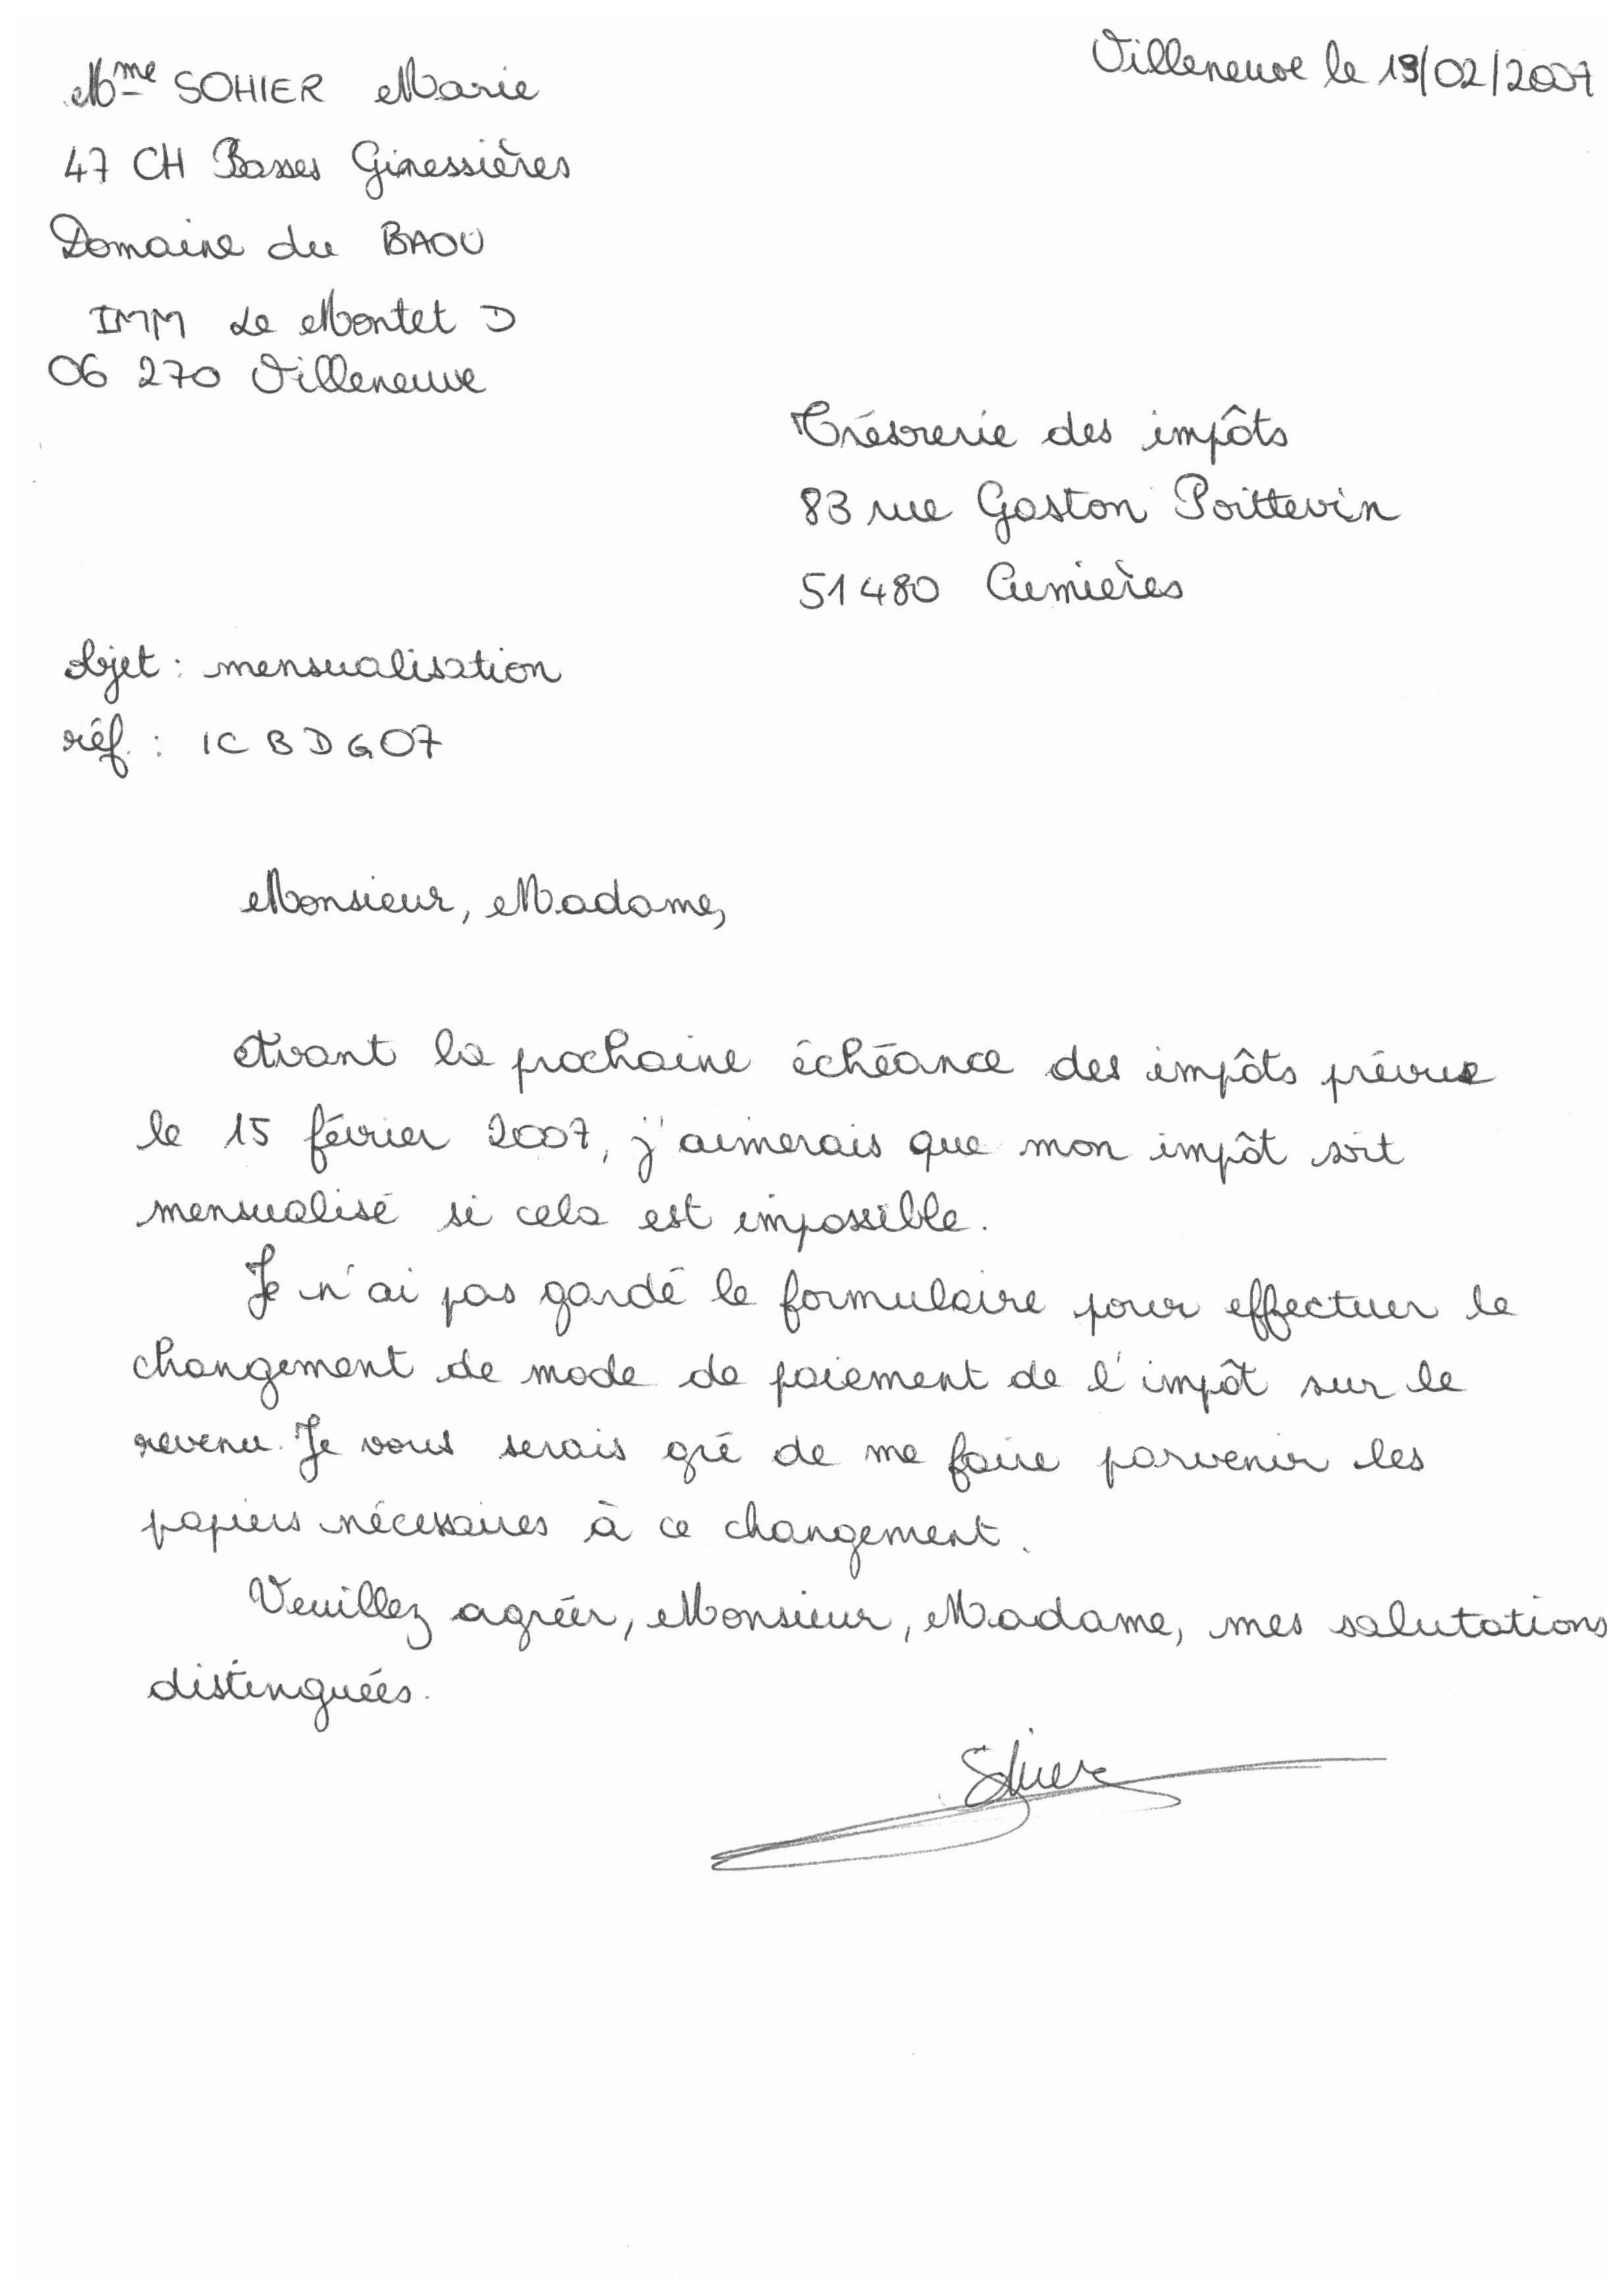 Villeneuve le 19/02/2007
Mme SOHIER Marie
47 CH Basses Ginessières
Domaine du BAOU
IMM Le Montet D
06 270 Villeneuve
Trésorerie des impôts
83 rue Gaston Poittevin
51480 Cumières
objet : mensualisation
réf. : ICBDG07
Monsieur, Madame,
Avant la prochaine échéance des impôts prévue
le 15 février 2007, j'aimerais que mon impôt soit
mensualisé si cela est impossible.
Je n'ai pas gardé le formulaire pour effectuer le
changement de mode de paiement de l'impôt sur le
revenu. Je vous serais gré de me faire parvenir les
papiers nécessaires à ce changement.
Veuillez agréer, Monsieur, Madame, mes salutations
distinguées.
Sohier